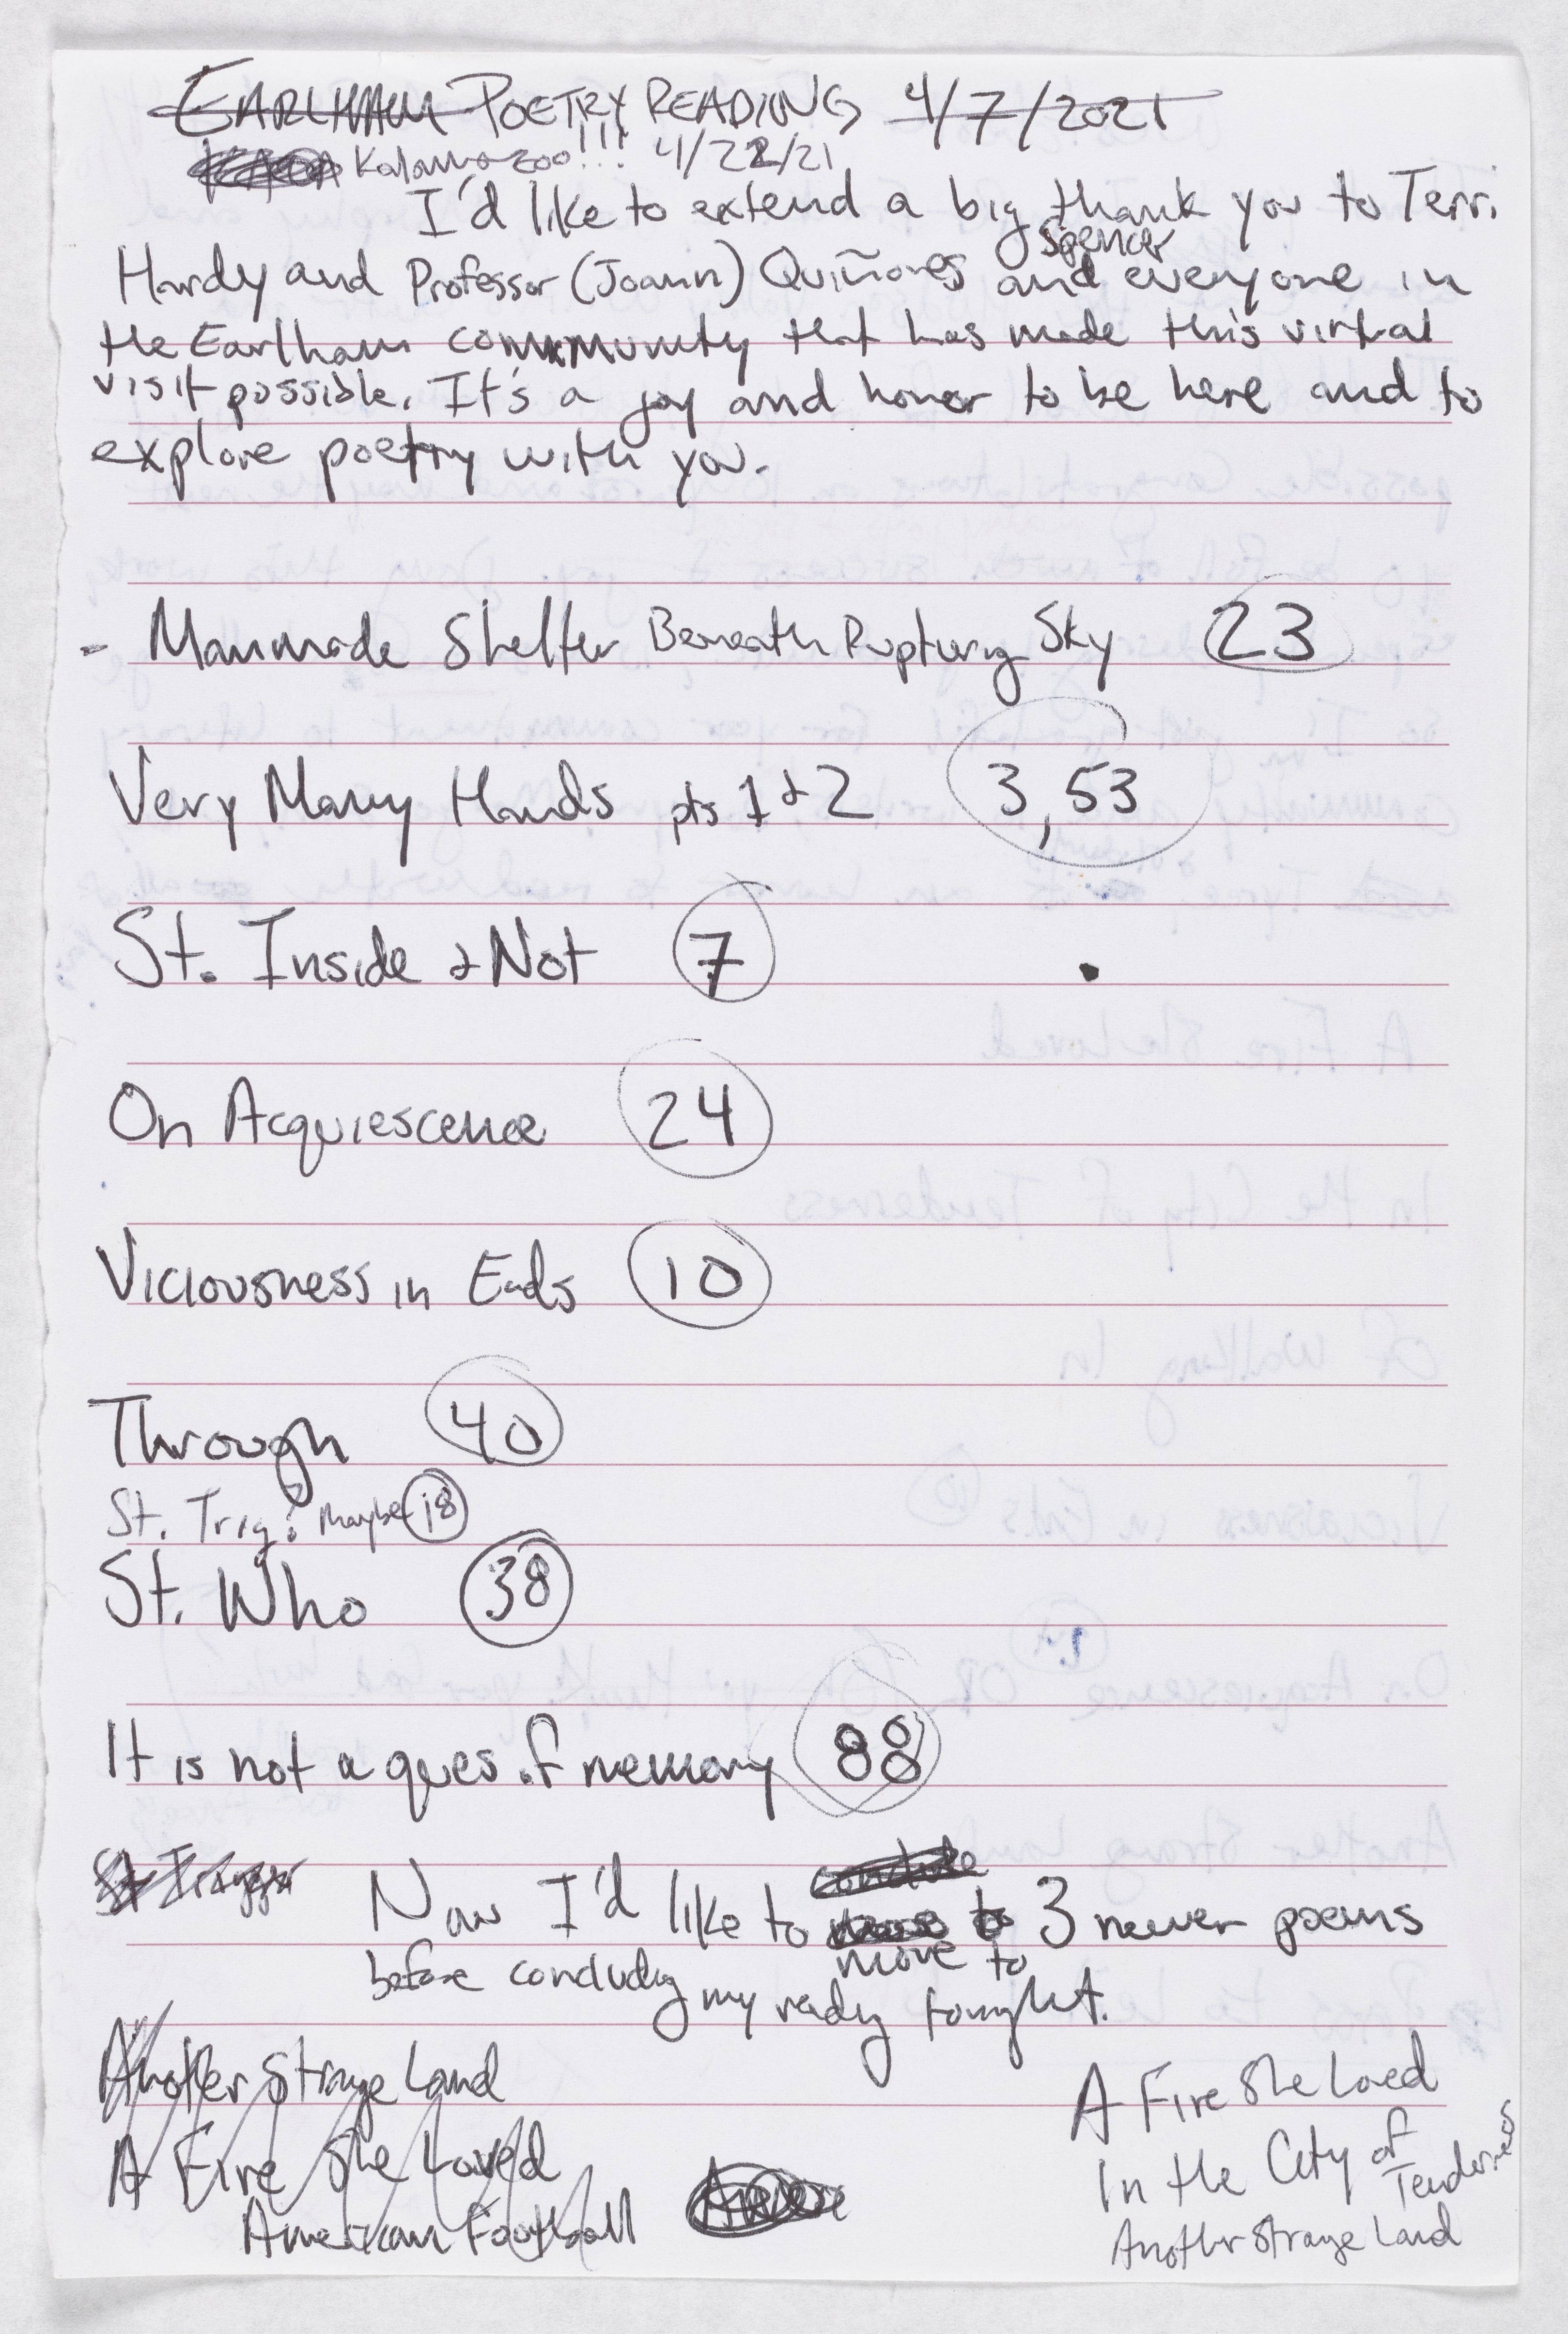 EARLHAM POETRY READING 4/7/2021
Kalamazoo!!! 4/22/21
I'd like to extend a big thank you to Terri
Spencer
Hardy and Professor (Joann) Quiñones and everyone in
the Earlham community that has made this virtual
visit possible. It's a joy and honor to be here and to
explore poetry with you.
- Manmade Shelter Beneath Rupturing Sky 23
Very Many Hands pts 1 & 2 3, 53
St. Inside & Not 7
On Acquiescence 24
Viciousness in Ends 10
Through 40
St. Trig? Maybe 18
St. Who 38
It is not a ques. of memory 88
St Trigger
conclude
Now I'd like to move to 3 newer poems
move to
before concluding my reading tonight.
Another Strange Land
A Fire She Loved
American Football
A Fire She Loved
In the City of
Tenderness
Another Strange Land